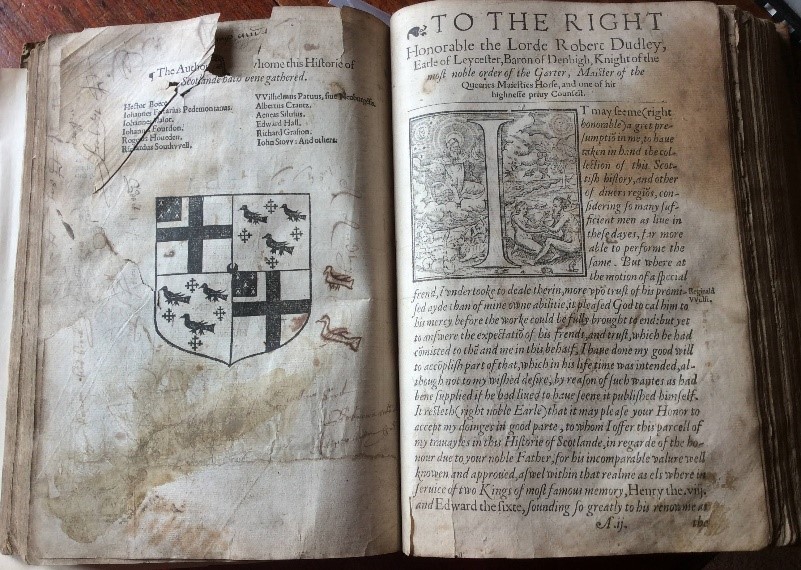 ¶ The Autho whome this Historie of
Scotlande hath bene gathered.
Hector Boece.
Iohannes Ferrarius Pedemontanus.
Iohannes Maior.
Iohannes Fourdon.
Roger Houeden.
Southvvell.
VVilhelmus Paruus, siue
Albertus Crantz.
Aeneas Siluius.
Edward Hall.
Richard Grafton.
Iohn Stovv: And others.
TO THE RIGHT
Honorable the Lorde Robert Dudley,
Earle of Leycester, Baron of Denbigh, Knight of the
most noble order of the Garter, Maister of the
Queenes Maiesties Horse, and one of hir
highnesse priuy Counsell.
IT may seeme (right
honorable) a gret pre-
sumptiō in me, to haue
taken in hand the col-
lection of this Scot-
tish history, and other
of diuers regiōs, con-
sidering so many suf-
ficient men as liue in
these dayes, far more
able to performe the
same. But where at
the motion of a special
frend, I vndertooke to deale therin, more vpō trust of his promi-
Reginald
VVolfe.
sed ayde than of mine owne abilitie, it pleased God to cal him to
his mercy before the worke could be fully brought to end: but yet
to answere the expectatiō of his frends, and trust, which he had
cōmitted to thē and me in this behalf, I haue done my good will
to accōplish part of that, which in his life time was intended, al-
though not to my wished desire, by reason of such wantes as had
bene supplied if he had liued to haue seene it published himself.
It resteth (right noble Earle) that it may please your Honor to
accept my doings in good parte, to whom I offer this parcell of
my trauayles in this Historie of Scotlande, in regarde of the ho-
nour due to your noble Father, for his incomparable valure well
knowen and approued, aswel within that realme as els where in
seruice of two Kings of most famous memory, Henry the. viij.
and Edward the sixte, sounding so greatly to his renowme as
A.ij. the